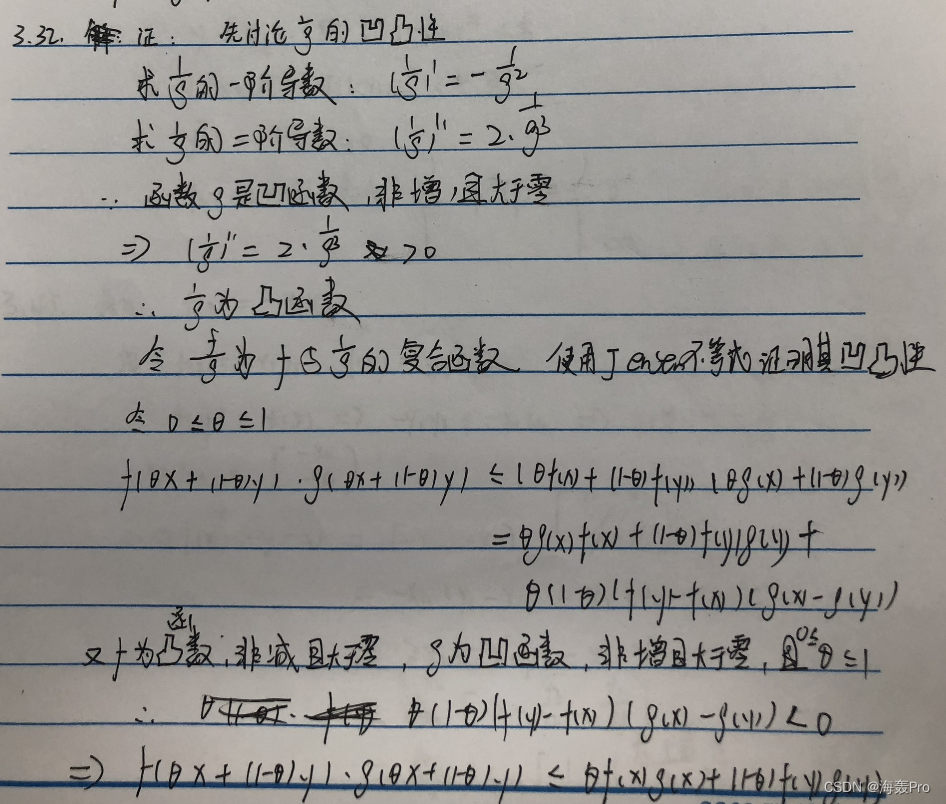 3.32. 解: 证: 先讨论 1/g 的凹凸性
求 1/g 的一阶导数: (1/g)' = - 1/g²
求 1/g 的二阶导数: (1/g)'' = 2· 1/g³
∵ 函数 g 是凹函数,非增,且大于零
=> (1/g)'' = 2· 1/g³ >0
∴ 1/g 为 凸函数
令 f/g 为 f 与 1/g 的复合函数, 使用Jensen不等式证明其凹凸性
令 0 ≤ θ ≤ 1
f(θx + (1-θ)y) · g(θx + (1-θ)y) ≤ (θf(x) + (1-θ)f(y)) (θg(x) + (1-θ)g(y))
= θg(x)f(x) + (1-θ)f(y)g(y) +
θ(1-θ)(f(y)-f(x))(g(x)-g(y))
又 f 为凸函数,非减且大于零, g 为凹函数,非增且大于零, 且 0≤θ≤1
∴ θ(1-θ)(f(y)-f(x))(g(x)-g(y)) < 0
=> f(θx + (1-θ)y) · g(θx + (1-θ)y) ≤ θf(x)g(x) + (1-θ)f(y)g(y)
CSDN @海轰Pro